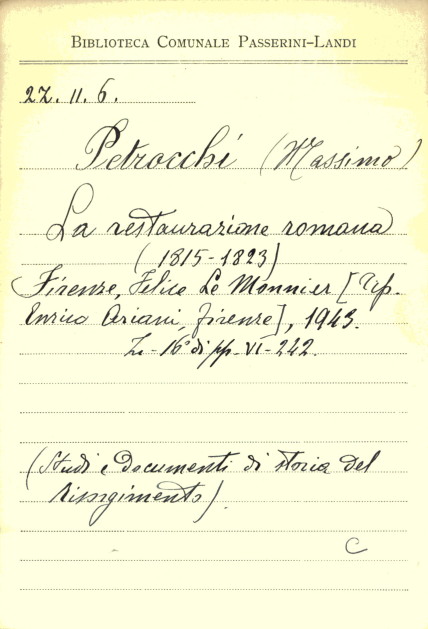 BIBLIOTECA COMUNALE PASSERINI-LANDI
2Z. 11. 6.
Petrocchi (Massimo)
La restaurazione romana
(1815-1823)
Firenze, Felice Le Monnier [Tip.
Enrico Ariani, Firenze], 1943.
In-16° di pp. VI-242.
(Studi e documenti di storia del
risorgimento).
C